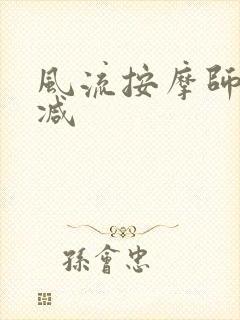 風流按摩師
减
孫會忠